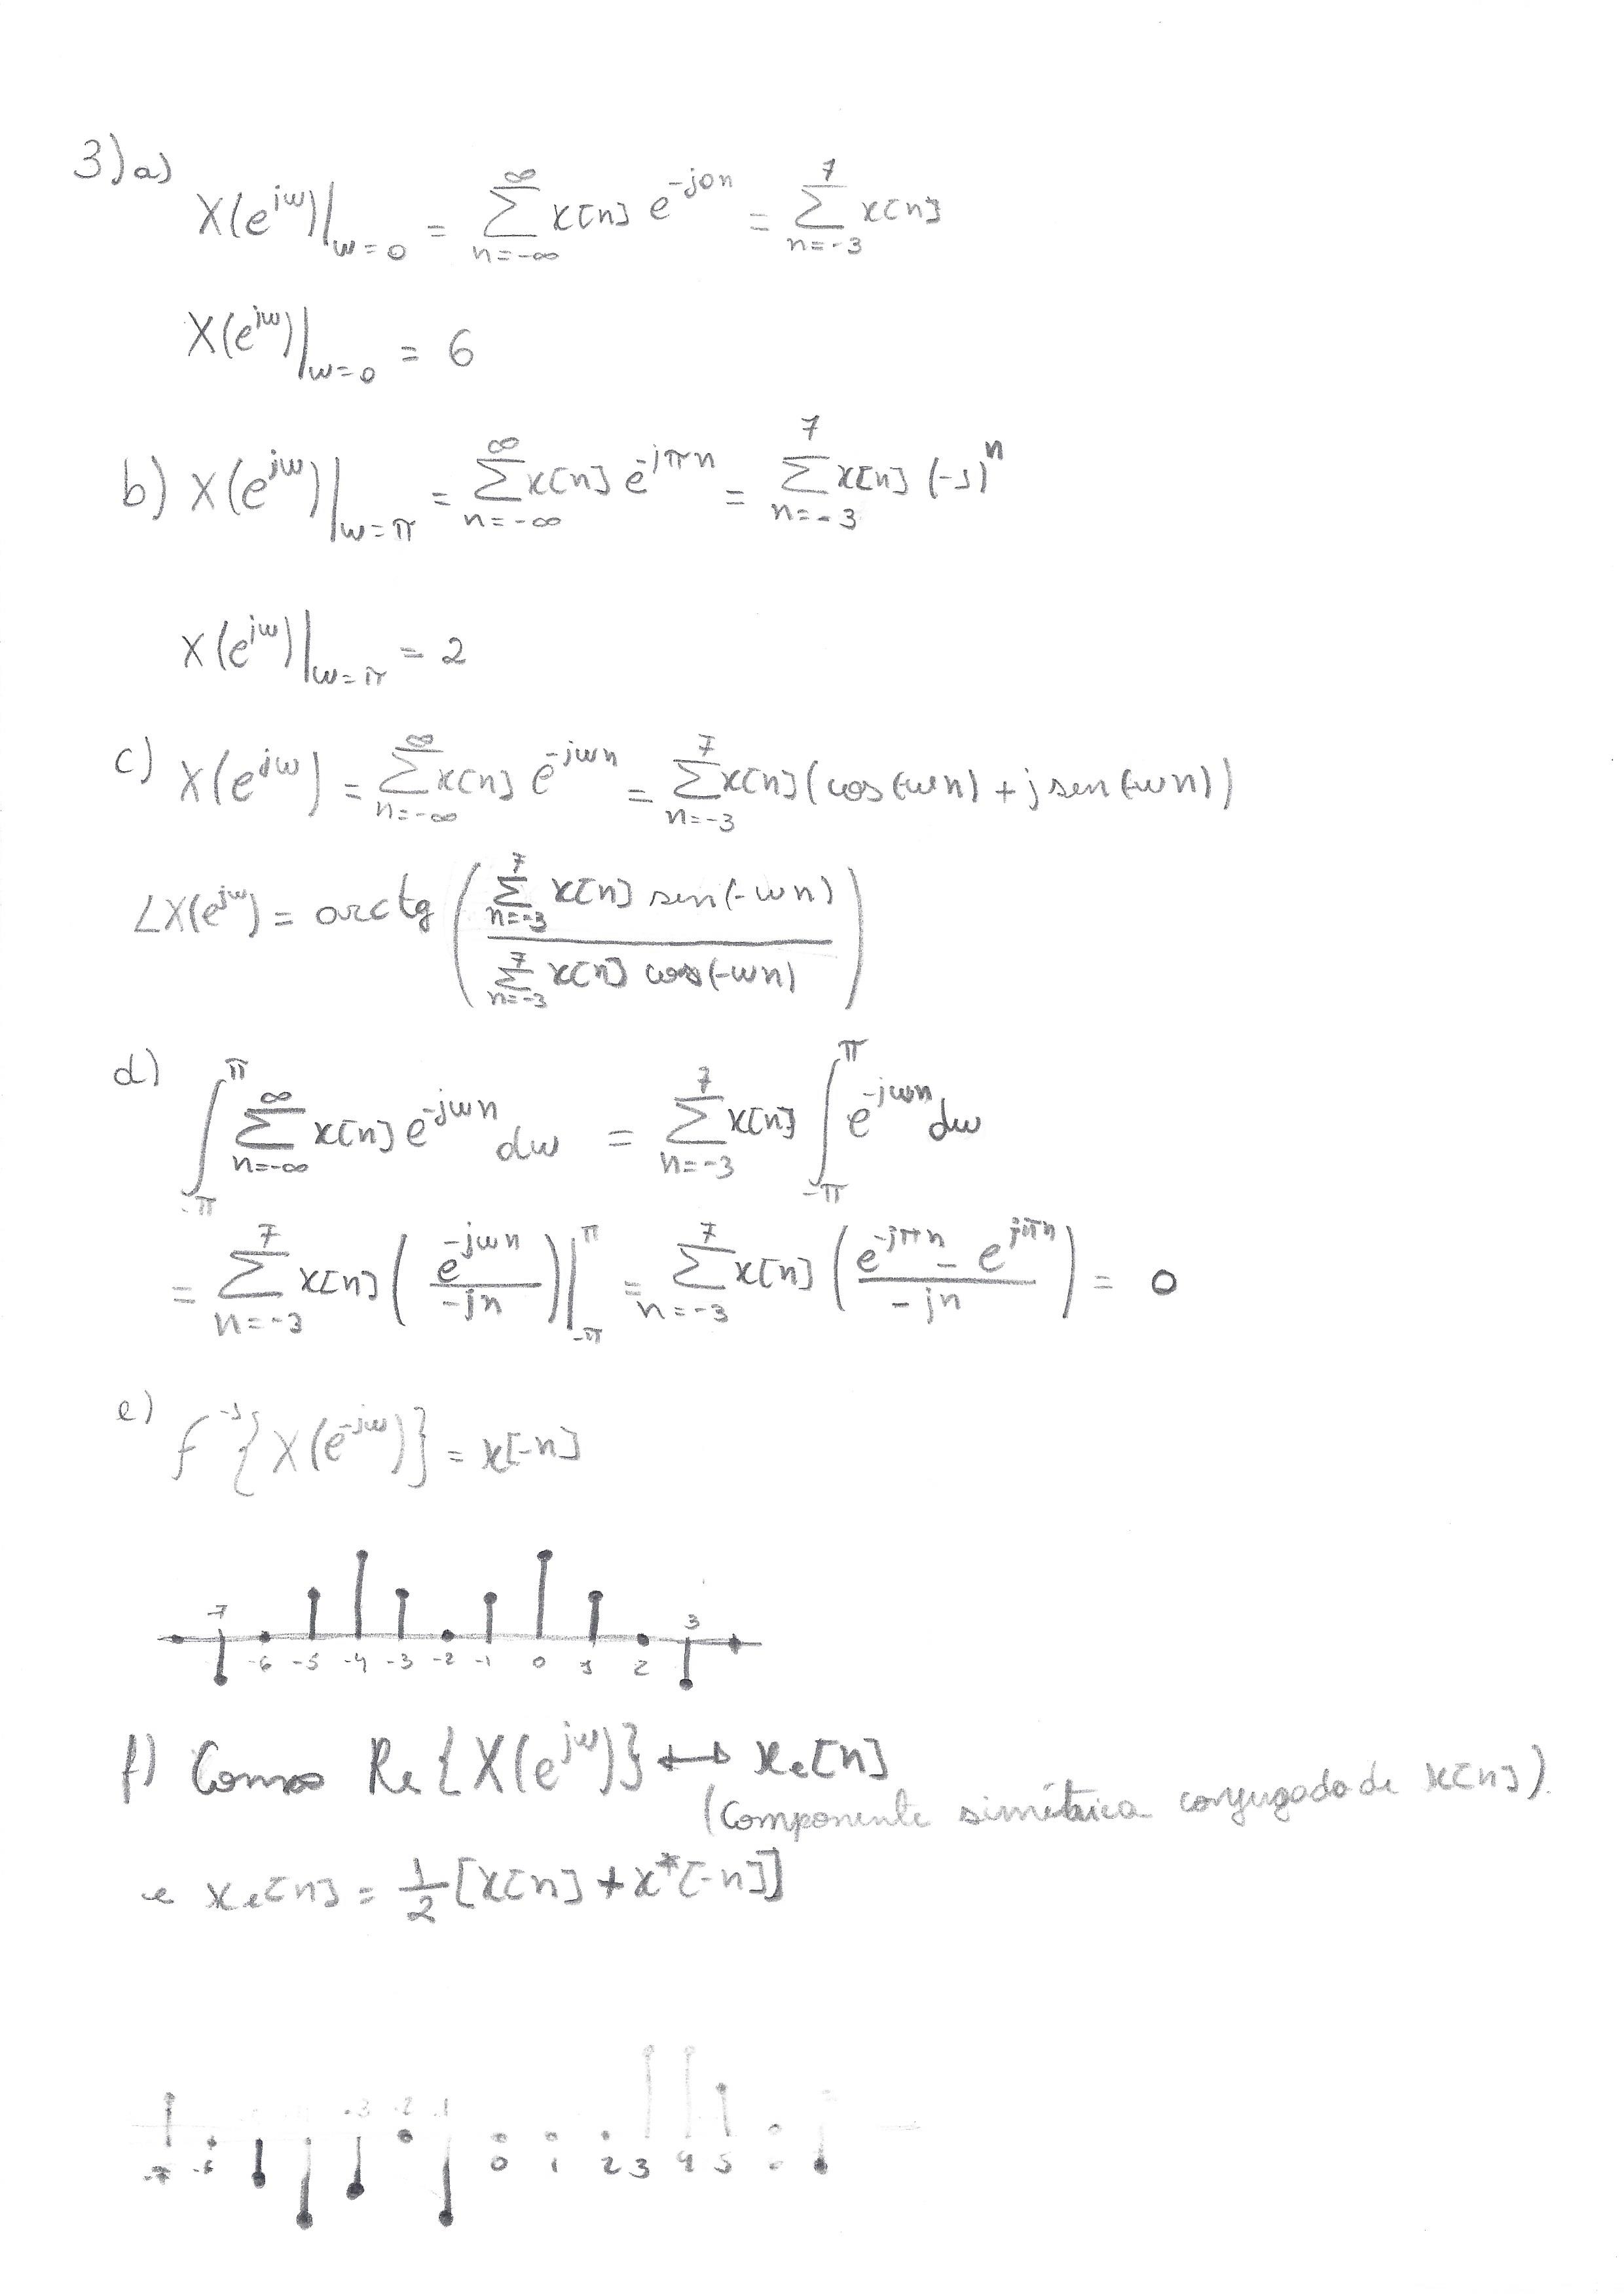 3) a)
X(e^{jω})|_{ω=0} = ∑_{n=-∞}^{∞} x[n] e^{-j0n} = ∑_{n=-3}^{7} x[n]
X(e^{jω})|_{ω=0} = 6
b) X(e^{jω})|_{ω=π} = ∑_{n=-∞}^{∞} x[n] e^{-jπn} = ∑_{n=-3}^{7} x[n] (-1)^n
X(e^{jω})|_{ω=π} = 2
c) X(e^{jω}) = ∑_{n=-∞}^{∞} x[n] e^{-jωn} = ∑_{n=-3}^{7} x[n] (cos(-ωn) + j sen(-ωn))
∠X(e^{jω}) = arctg ( ∑_{n=-3}^{7} x[n] sen(-ωn) / ∑_{n=-3}^{7} x[n] cos(-ωn) )
d) ∫_{-π}^{π} ∑_{n=-∞}^{∞} x[n] e^{-jωn} dω = ∑_{n=-3}^{7} x[n] ∫_{-π}^{π} e^{-jωn} dω
= ∑_{n=-3}^{7} x[n] ( e^{-jωn} / -jn )|_{-π}^{π} = ∑_{n=-3}^{7} x[n] ( (e^{-jπn} - e^{jπn}) / -jn ) = 0
e) f^{-1}{X(e^{-jω})} = x[-n]
-7 -6 -5 -4 -3 -2 -1 0 1 2 3
f) Como Re{X(e^{jω})} ↔ x_e[n]
(Componente simétrica conjugada de x[n]).
e x_e[n] = 1/2 [x[n] + x*[-n]]
-3 -2 -1
-7 -6 0 1 2 3 4 5